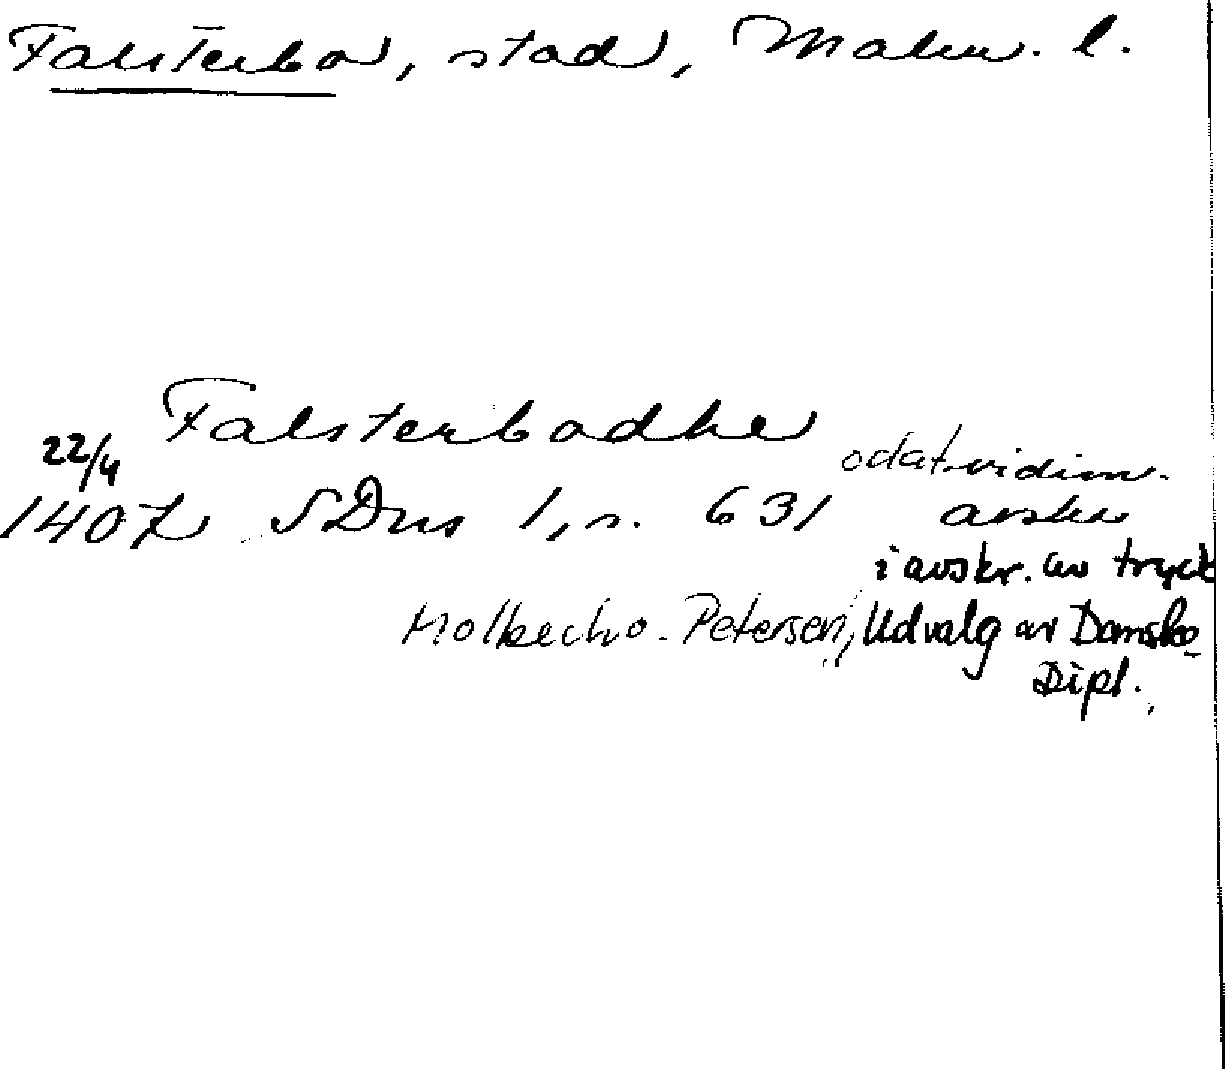 Falsterbo, stad, Malm. l.
Falsterbodhe
22/4
odat. vidim.
1407 SDns 1, s. 631 avskr
i avskr. av tryck
Molbech o. Petersen, Udvalg av Danske
Dipl.